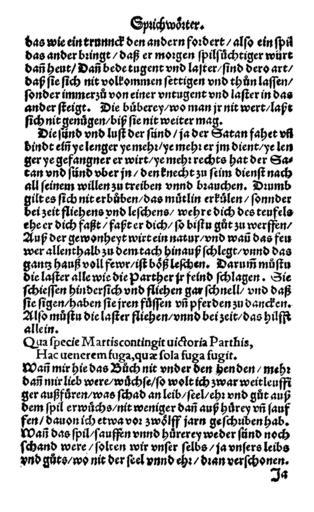 Sprichwörter.
das wie ein trunnck den andern fordert / also ein spil
das ander bringt / daß er morgen spilsüchtiger würt
dañ heut / Dañ bede tugent vnd laster / sind dero art /
daß sie sich nit volkommen settigen vnd thůn lassen /
sonder immerzů von einer vntugent vnd laster in das
ander steigt. Die bůberey / wo man jr nit wert / laßt
sich nit genügen / biß sie nit weiter mag.
Die sünd vnd lust der sünd / ja der Satan fahet vñ
bindt ein ye lenger ye mehr / ye mehr er jm dient / ye len
ger ye gefangner er wirt / ye mehr rechts hat der Sa=
tan vnd sünd vber jn / den knecht zů seim dienst nach
all seinem willen zů treiben vnnd brauchen. Drumb
gilt es sich nit erbüben / das mütlin erkülen / sonnder
bei zeit fliehens vnd leschens / wehre dich des teufels
ehe er dich faßt / faßt er dich / so bistu gůt zů werffen /
Auß der gewonheyt wirt ein natur / vnd wañ das feu
wer allenthalb zů dem tach hinauß schlegt / vnnd das
gantz hauß voll fewr / ist böß leschen. Darum můstu
die laster alle wie die Parther jr feind schlagen. Sie
schiessen hindersich vnd fliehen gar schnell / vnd daß
sie sigen / haben sie jren füssen vñ pferden zů dancken.
Also můstu die laster fliehen / vnnd bei zeit / das hilfft
allein.
Qua specie Martis contingit victoria Parthis,
Hac uenerem fuga, quæ sola fuga fugit.
Wañ mir hie das Bůch nit vnder den henden / mehr
dañ mir lieb were / wůchse / so wolt ich zwar weitleuffi
ger außfüren / was schad an leib / seel / ehr vnd gůt auß
dem spil erwůchs / nit weniger dañ auß hůrey vñ sauf
fen / dauon ich etwa vor zwölff jarn geschriben hab.
Wañ das spil / sauffen vnnd hůrerey weder sünd noch
schand were / solten wir vnser selbs / ja vnsers leibs
vnd gůts / wo nit der seel vnnd ehr / dran verschonen.
Ja